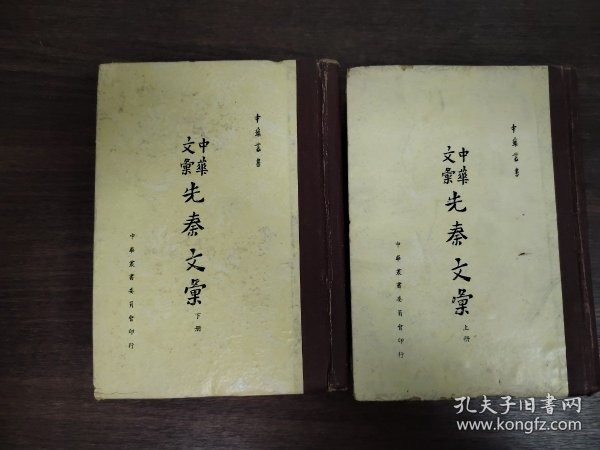 中華叢書
中華
文彙
先秦文彙
上册
中華叢書委員會印行
中華叢書
中華
文彙
先秦文彙
下册
中華叢書委員會印行
孔夫子旧书网
www.kongfz.com